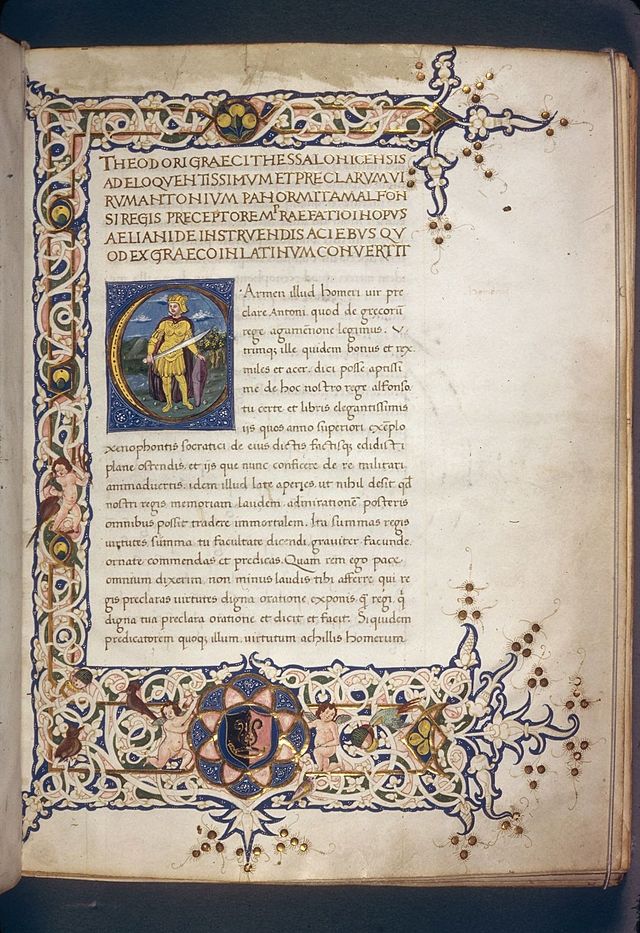 THEODORI GRAECI THESSALONICENSIS
AD ELOQVENTISSIMVM ET PRECLARVM VI
RVM ANTONIVM PANORMITAM ALFON
SI REGIS PRECEPTOREM PRAEFATIO IN OPVS
AELIANI DE INSTRVENDIS ACIEBVS QV
OD EX GRAECO IN LATINVM CONVERTIT
CArmen illud homeri uir pre
clare Antoni. quod de grecorũ
rege agamẽnone legimus. V
trimqȝ ille quidem bonus et rex.
miles et acer. dici posse aptissi
me de hoc nostro rege alfonso.
tu certe et libris elegantissimis
iis quos anno superiori exẽplo
xenophontis socratici de eius dictis factisqȝ edidisti
plane ostendis. et ijs que nunc conficere de re militari
animaduertis. idem illud late aperies. ut nihil desit qđ
nostri regis memoriam. laudem. admirationẽ posteris
omnibus possit tradere immortalem. Ita summas regis
uirtutes. summa tu facultate dicendi. grauiter. facunde.
ornate commendas et predicas. Quam rem ego pace
omnium dixerim. non minus laudis tibi afferre qui re
gis preclaras uirtutes digna oratione exponis. q̃ regi. q̃
digna tua preclara oratione et dicit et facit. Siquidem
predicatorem quoqȝ illum. uirtutum achillis homerum